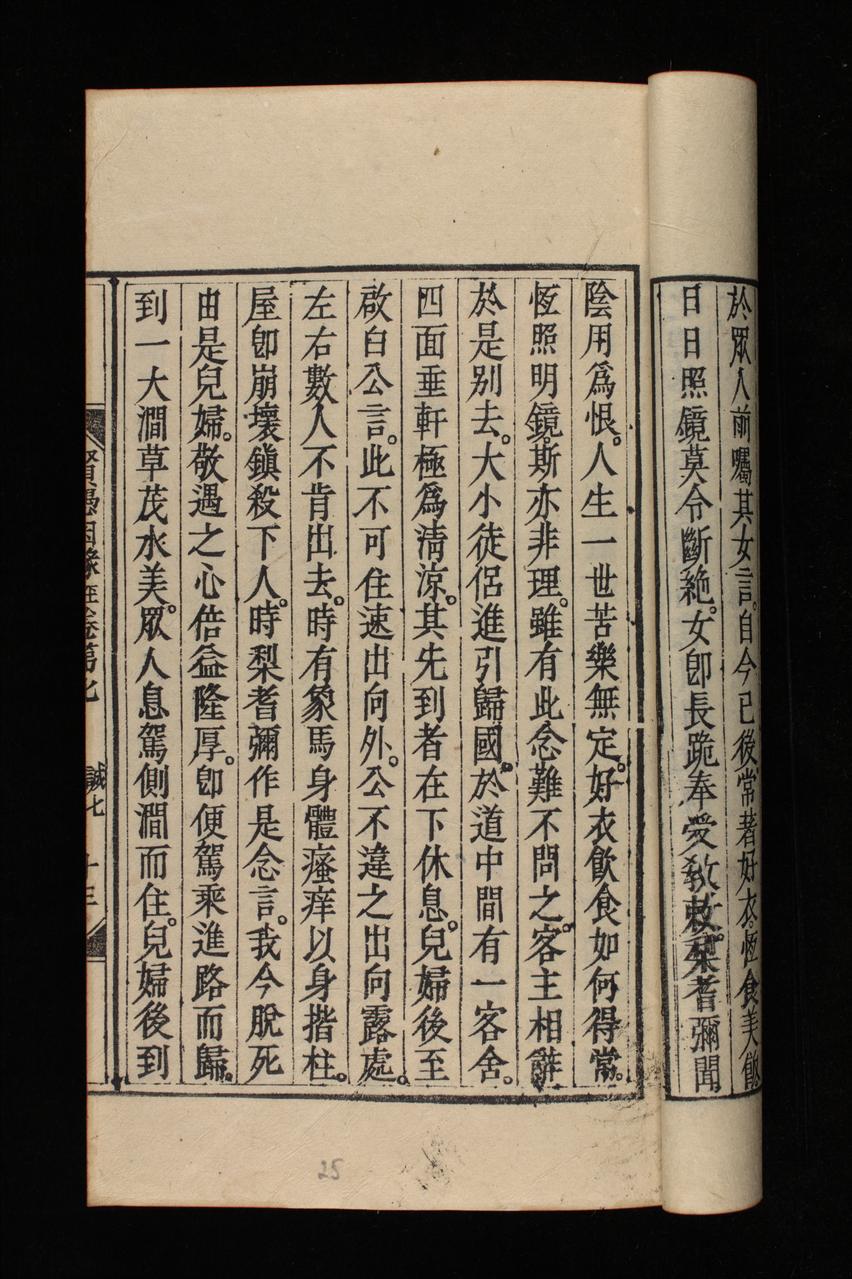 於眾人前囑其女言。自今已後常著好衣。恆食美飲
日日照鏡莫令斷絕。女卽長跪奉受敎敕。梨耆彌聞
陰用爲恨。人生一世苦樂無定。好衣飮食如何得常。
恆照明鏡。斯亦非理。雖有此念難不問之。客主相辭
於是別去。大小徒侶進引歸國。於道中間有一客舍。
四面垂軒極爲淸涼。其先到者在下休息。兒婦後至
啟白公言。此不可住速出向外。公不違之出向露處。
左右數人不肯出去。時有象馬身體瘙痒以身揩柱。
屋卽崩壞鎭殺下人。時梨耆彌作是念言。我今脫死
由是兒婦。敬遇之心倍益隆厚。卽便駕乘進路而歸。
到一大澗草茂水美。眾人息駕側澗而住。兒婦後到
賢愚因緣經卷第七 誠七 十三
25